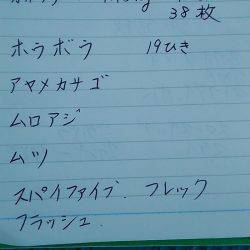 38枚
ホウボウ 19ひき
アヤメカサゴ
ムロアジ
ムツ
スパイファイブ. フレック
フラッシュ.